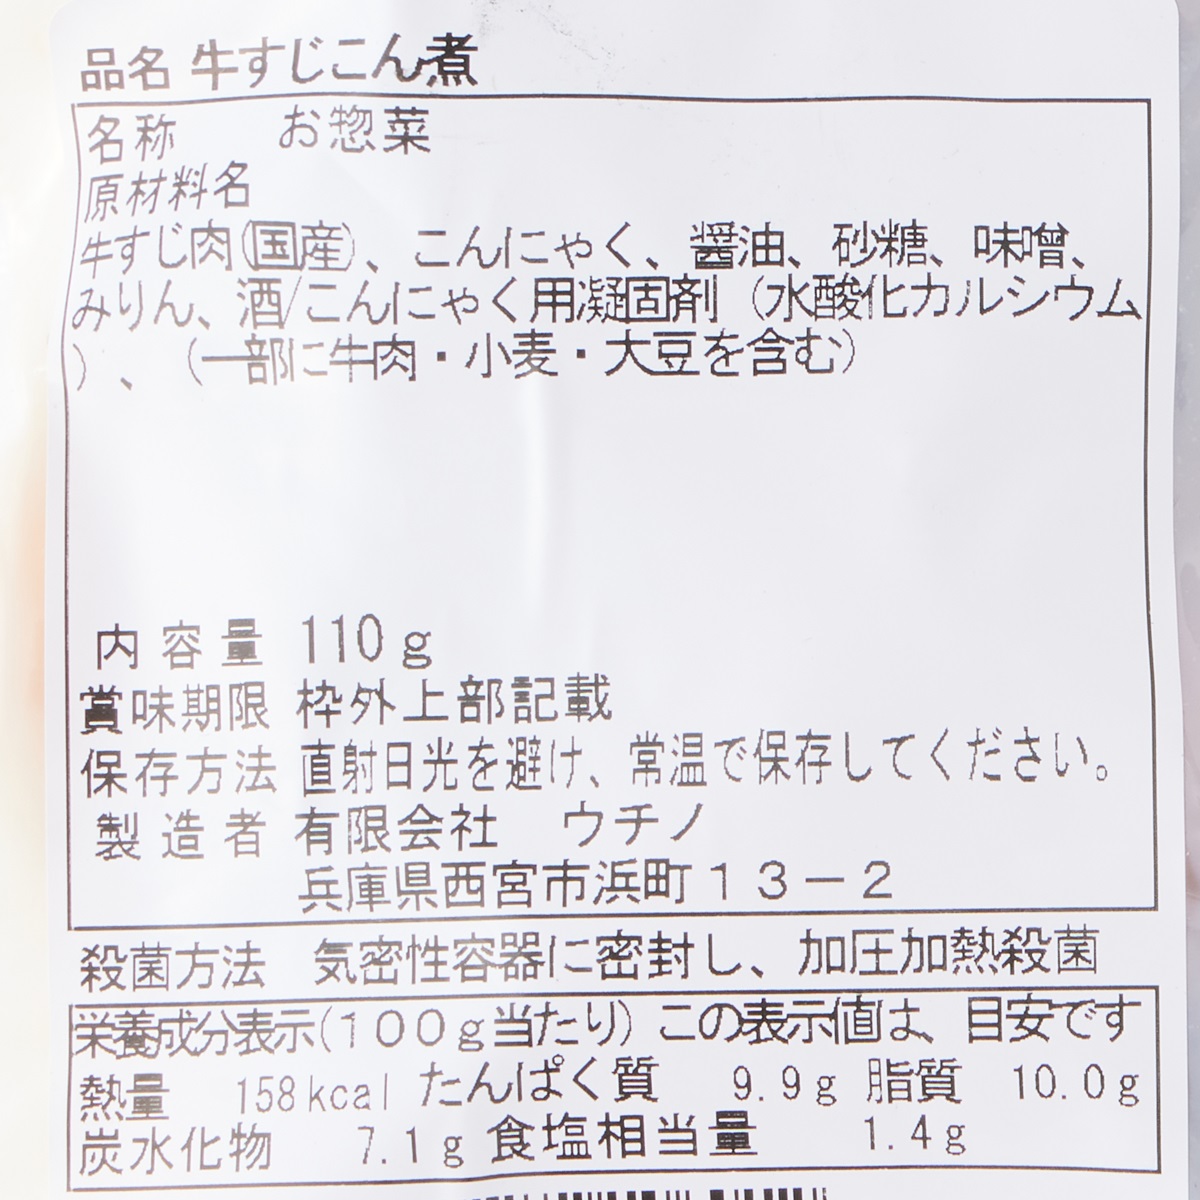 品名 牛すじこん煮
名称 お惣菜
原材料名
牛すじ肉(国産)、こんにゃく、醤油、砂糖、味噌、
みりん、酒/こんにゃく用凝固剤（水酸化カルシウム
）、（一部に牛肉・小麦・大豆を含む）
内容量 110g
賞味期限 枠外上部記載
保存方法 直射日光を避け、常温で保存してください。
製造者 有限会社 ウチノ
兵庫県西宮市浜町１３－２
殺菌方法 気密性容器に密封し、加圧加熱殺菌
栄養成分表示(１００g当たり) この表示値は、目安です
熱量 158kcal たんぱく質 9.9g 脂質 10.0g
炭水化物 7.1g 食塩相当量 1.4g